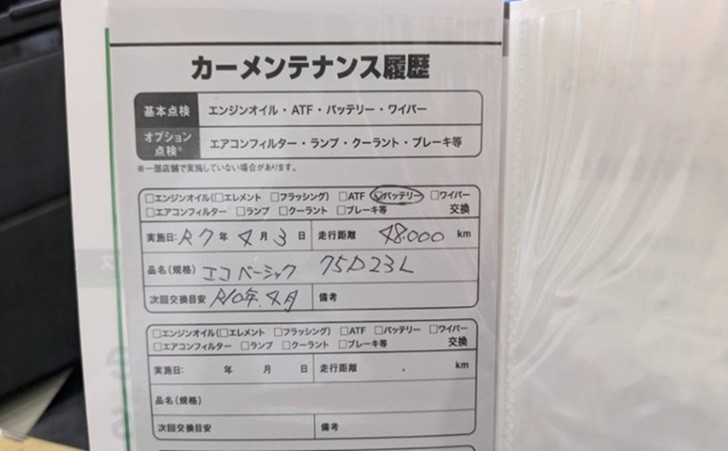 カーメンテナンス履歴
基本点検 エンジンオイル・ATF・バッテリー・ワイパー
オプション点検※ エアコンフィルター・ランプ・クーラント・ブレーキ等
※一部店舗で実施していない場合があります。
□エンジンオイル(□エレメント □フラッシング) □ATF ☑バッテリー □ワイパー
□エアコンフィルター □ランプ □クーラント □ブレーキ等 交換
実施日:R7年4月3日 走行距離 48.000 km
品名(規格) エコベーシック 75D23L
次回交換目安 R10年.4月 備考
□エンジンオイル(□エレメント □フラッシング) □ATF □バッテリー □ワイパー
□エアコンフィルター □ランプ □クーラント □ブレーキ等 交換
実施日: 年 月 日 走行距離 . km
品名(規格)
次回交換目安 備考